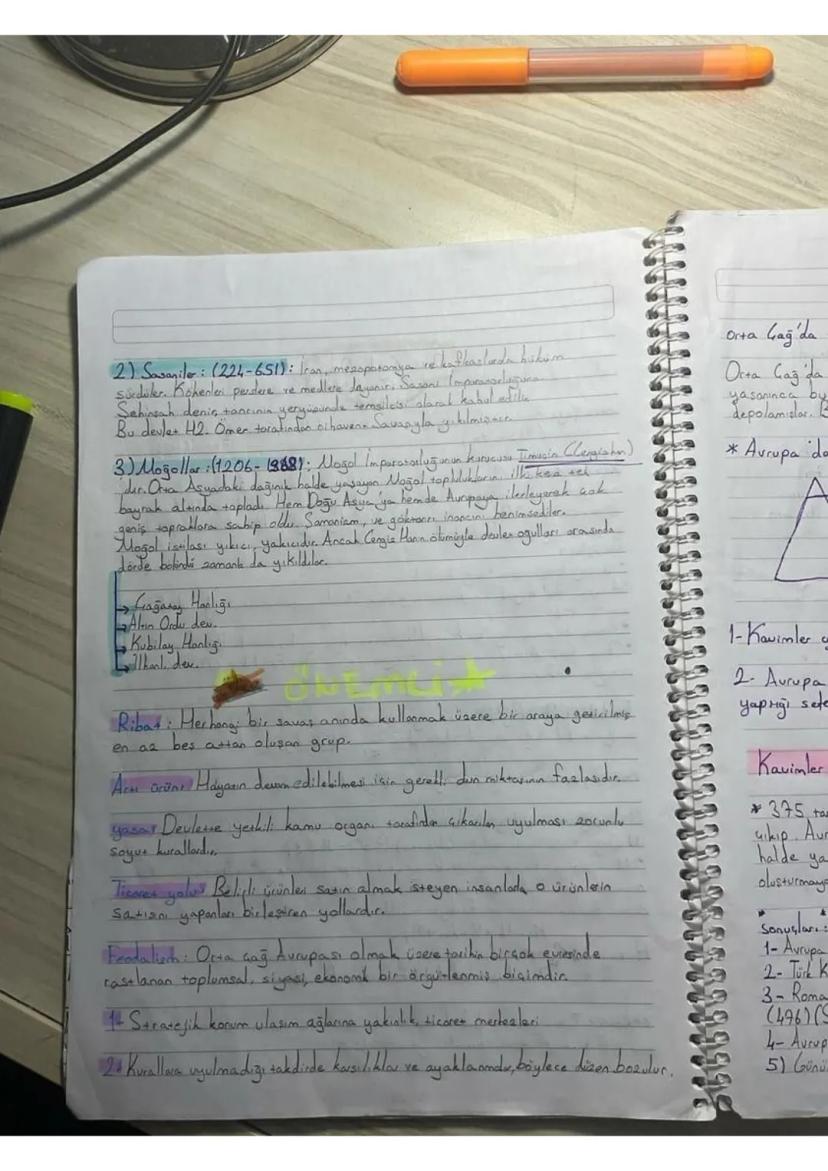 2) Sasaniler : (224-651): İran, mezopotamya ve kafkaslarda hüküm
sürdüler. Kökenleri perslere ve medlere dayanır. Sasani İmparatorluğuna
Şehinşah denir, tanrının yeryüzünde temsilcisi olarak kabul edilir.
Bu devlet Hz. Ömer tarafından nihavend Savaşıyla yıkılmıştır.
3) Moğollar : (1206- ): Moğol İmparatorluğunun kurucusu Timuçin (Cengizhan)
'dır. Orta Asyadaki dağınık halde yaşayan Moğol topluluklarını ilk kez tek
bayrak altında topladı. Hem Doğu Asya'ya hemde Avrupaya ilerleyerek çok
geniş topraklara sahip oldu. Şamanizm, ve göktanrı inancını benimsediler.
Moğol istilası yıkıcı, yakıcıdır. Ancak Cengiz Hanın ölümüyle devlet oğulları arasında
dörde bölündü zamanla da yıkıldılar.
→ Çağatay Hanlığı
→ Altın Ordu dev.
→ Kubilay Hanlığı
→ İlhanlı dev.
ÖNEMLİ
Ribat : Herhangi bir savaş anında kullanmak üzere bir araya getirilmiş
en az beş attan oluşan grup.
Artı ürün: Hayatın devam edilebilmesi için gerekli olan miktarının fazlasıdır.
yasa: Devlette yetkili kamu organı tarafından çıkarılan uyulması zorunlu
soyut kurallardır.
Ticaret yolu: Belirli ürünleri satın almak isteyen insanlarla o ürünlerin
satışını yapanları birleştiren yollardır.
Feodalizm : Orta çağ Avrupası olmak üzere tarihin birçok evresinde
rastlanan toplumsal, siyasi, ekonomik bir örgütlenmiş biçimidir.
1- Stratejik konum ulaşım ağlarına yakınlık, ticaret merkezleri
2- Kurallara uyulmadığı takdirde karışıklıklar ve ayaklanmalar, böylece düzen bozulur.
Orta Çağ'da
Orta Çağ'da
yaşanınca bu
depolamışlar.
* Avrupa'da
1- Kavimler g
2- Avrupa
yaptığı sefe
Kavimler
* 375 ta
çıkıp Avr
halde ya
oluşturmaya
Sonuçları :
1- Avrupa
2- Türk K
3- Roma
(476) (
4- Avrup
5) Günü